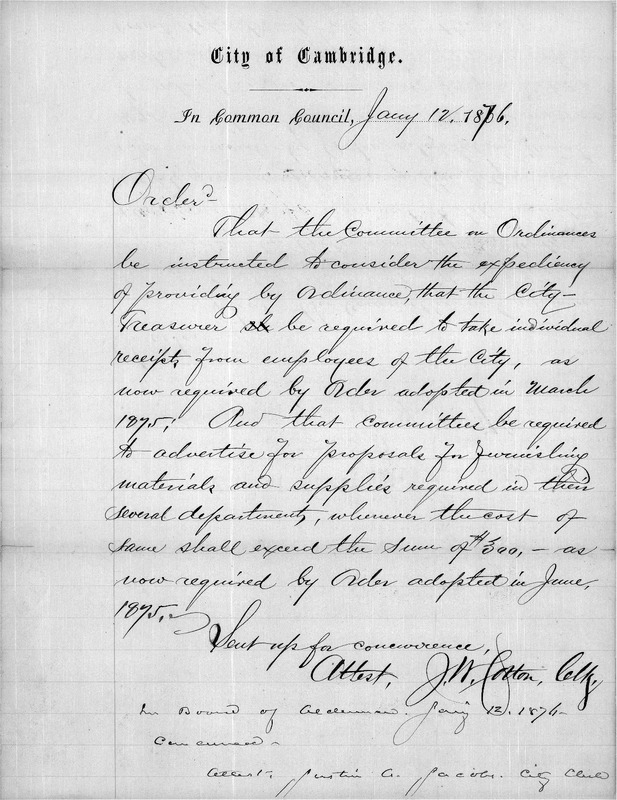 City of Cambridge.
In Common Council, Jany 12, 1876.
Orderd
That the Committee on Ordinances
be instructed to consider the expediency
of providing by Ordinance, that the City
Treasurer be required to take individual
receipts from employees of the City, as
now required by Order adopted in March
1875; And that committees be required
to advertise for proposals for furnishing
materials and supplies required in their
several departments, whenever the cost of
same shall exceed the sum of $300,- as
now required by Order adopted in June,
1875.
Sent up for concurrence,
Attest, J.W. Cotton, Clk.
In Board of Aldermen. Jany 12, 1876-
Concurred-
Attest, Justin A. Jacobs. City Clerk